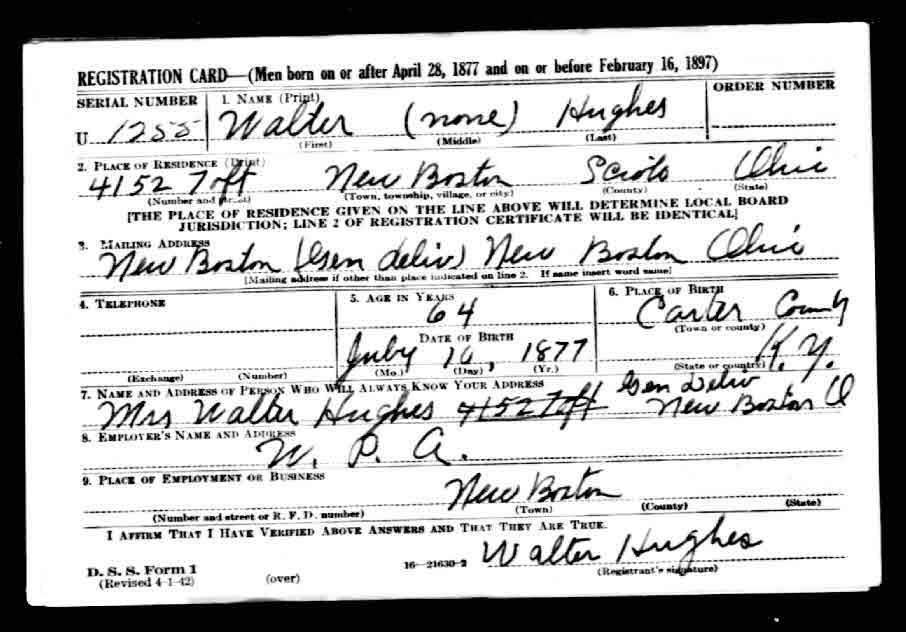 REGISTRATION CARD—(Men born on or after April 28, 1877 and on or before February 16, 1897)
SERIAL NUMBER 1. NAME (Print) ORDER NUMBER
U 1255 Walter (none) Hughes
(First) (Middle) (Last)
2. PLACE OF RESIDENCE (Print)
4152 Taft New Boston Scioto Ohio
(Number and street) (Town, township, village, or city) (County) (State)
[THE PLACE OF RESIDENCE GIVEN ON THE LINE ABOVE WILL DETERMINE LOCAL BOARD
JURISDICTION; LINE 2 OF REGISTRATION CERTIFICATE WILL BE IDENTICAL]
3. MAILING ADDRESS
New Boston (Gen deliv) New Boston Ohio
[Mailing address if other than place indicated on line 2. If same insert word same]
4. TELEPHONE 5. AGE IN YEARS 6. PLACE OF BIRTH
64 Carter County
DATE OF BIRTH (Town or county)
July 10, 1877 K.Y.
(Exchange) (Number) (Mo.) (Day) (Yr.) (State or country)
7. NAME AND ADDRESS OF PERSON WHO WILL ALWAYS KNOW YOUR ADDRESS
Mrs Walter Hughes 4152 Taft Gen Deliv New Boston O
8. EMPLOYER'S NAME AND ADDRESS
W. P. A.
9. PLACE OF EMPLOYMENT OR BUSINESS
New Boston
(Number and street or R. F. D. number) (Town) (County) (State)
I AFFIRM THAT I HAVE VERIFIED ABOVE ANSWERS AND THAT THEY ARE TRUE.
Walter Hughes
D. S. S. Form 1 16—21630-2 (Registrant's signature)
(Revised 4-1-42) (over)